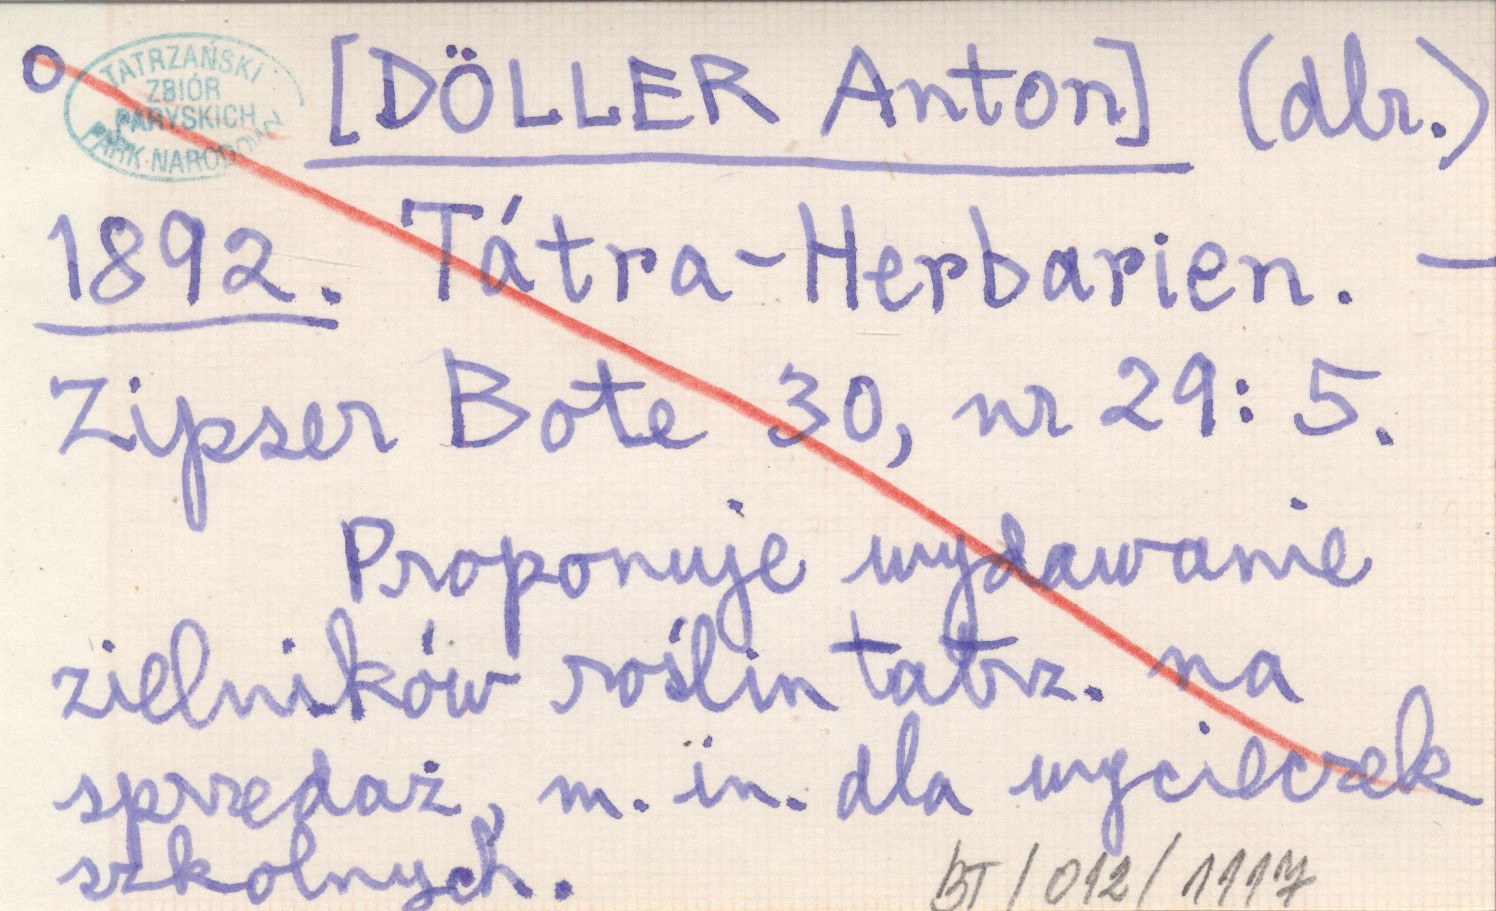 o [DÖLLER Anton] (dbr.)
TATRZAŃSKI
ZBIÓR
PARYSKICH
PARK NARODOWY
1892. Tátra-Herbarien. —
Zipser Bote 30, nr 29: 5.
Proponuje wydawanie
zielników roślin tatrz. na
sprzedaż, m. in. dla wycieczek
szkolnych.
BT/012/1117